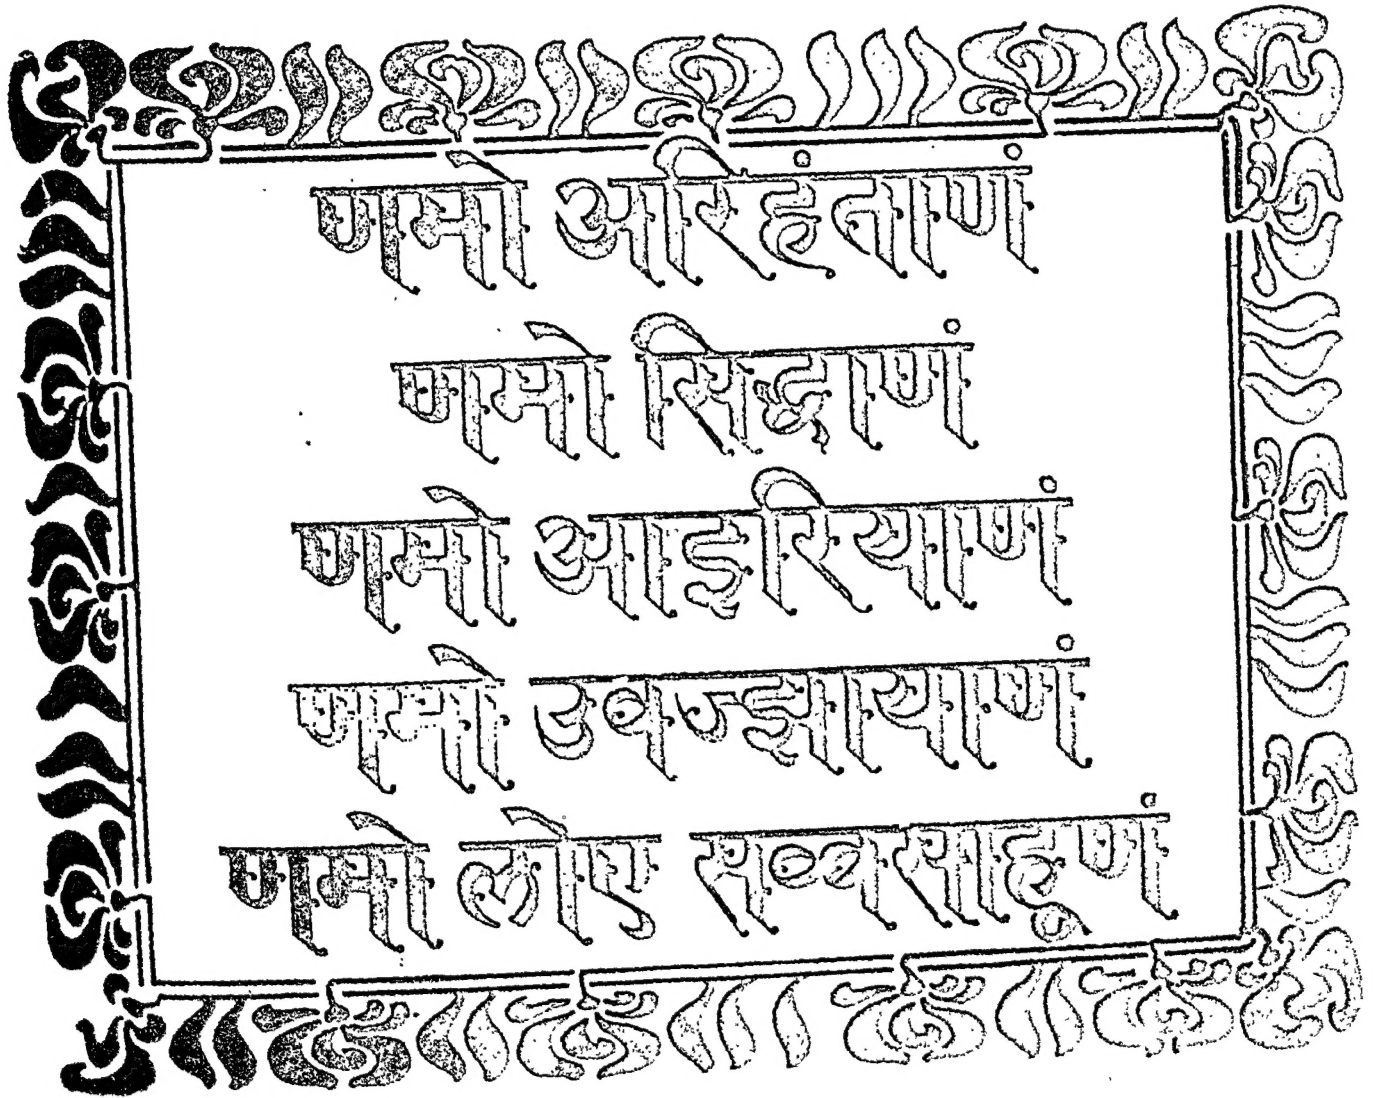 णमो अरिहंताणं
णमो सिद्धाणं
णमो आइरियाणं
णमो उवज्झायाणं
णमो लोए सव्वसाहूणं